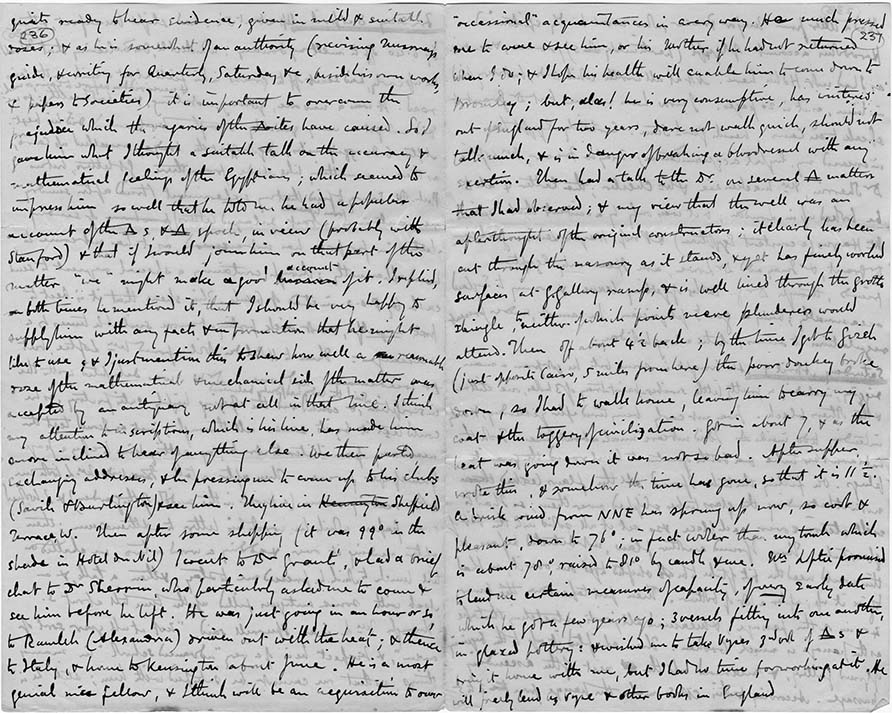 236
quite ready to hear evidence, given in mild & suitable
doses; & as he is somewhat of an authority (revising Murray's
guide, & writing for Quarterly, Saturday &c, beside his own works
& papers to Societies) it is important to overcome the
prejudice which the vagaries of the Δites have caused. So I
gave him what I thought a suitable talk on the accuracy, &
mathematical feelings of the Egyptians; which seemed to
impress him so well that he told me he had a popular
account of the Δs & Δ epoch, in view (probably with
Stanford) & that if I would join him on that part of the
matter "we" might make a good account of it. I replied,
both times he mentioned it, that I should be very happy to
supply him with any facts & information that he might
like to use; & I just mention this to shew how well a reasonable
dose of the mathematical & mechanical side of the matter was
accepted by an antiquary not at all in that line. I think
my attention to inscriptions, which is his line, has made him
more inclined to hear of anything else. We then parted
exchanging addresses, & he pressing me to come up to his clubs
(Savile & Burlington) & see him. They live in Kensington Sheffield
Terrace, W. Then after some shopping (it was 99° in the
shade in Hotel du Nil) I went to Dr Grant's, & had a brief
chat to Dr Sherrin, who particularly asked me to come &
see him before he left. He was just going in an hour or so,
to Ramleh (Alexandria) driven out with the heat; & thence
to Italy, & home to Kensington about June. He is a most
genial nice fellow, & I think will be an acquisition to our
237
"recessional" acquaintances in every way. He much pressed
me to come & see him, or his Mother if he had not returned
when I do; & I hope his health will enable him to come down to
Bromley; but, alas! he is very consumptive, has wintered
out of England for two years, dare not walk quick, should not
talk much, & is in danger of breaking a bloodvessel with any
exertion. Then had a talk to the Dr. on several Δ matters
that I had observed; & my view that the well was an
afterthought of the original constructors; it clearly has been
cut through the masonry as it stands, & yet has finely worked
surfaces at G. gallery ramp, & is well lined through the grotto
shingle, to neither of which points mere plunderers would
attend. Then off about 4½ back; by the time I got to Gizeh
(just opposite Cairo, 5 miles from here) the poor donkey broke
down, so I had to walk home, leaving him to carry my
coat & the toggery of civilization. Got in about 7, & as the
heat was going down it was not so bad. After supper,
wrote this, & somehow the time has gone, so that it is 11½.
A brisk wind from NNE has sprung up now, so cool &
pleasant, down to 76°; in fact cooler than my tomb which
is about 78° raised to 81° by candle & me. Dr. after promised
to lend me certain measures of capacity, of very early date
which he got a few years ago; 3 vessels fitting into one another,
in glazed pottery: & wished me to take Vyse's 3d vol of Δs &
bring it home with me, but I had no time for working at it. He
will freely lend us Vyse & other books in England